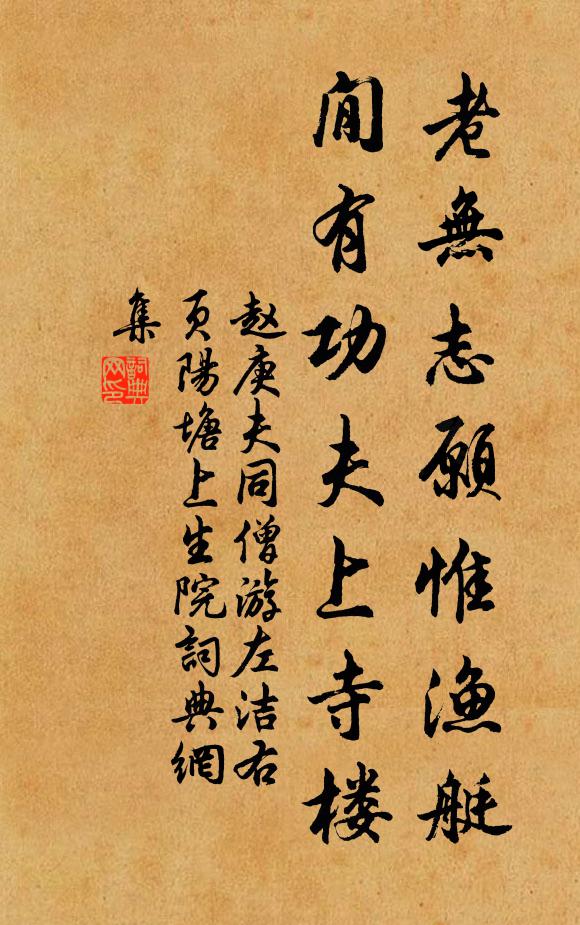 老無志願惟漁艇
閒有功夫上寺楼
赵庚夫同僧游左洁右
页陽塘上生院詞典網
集
詞典網印